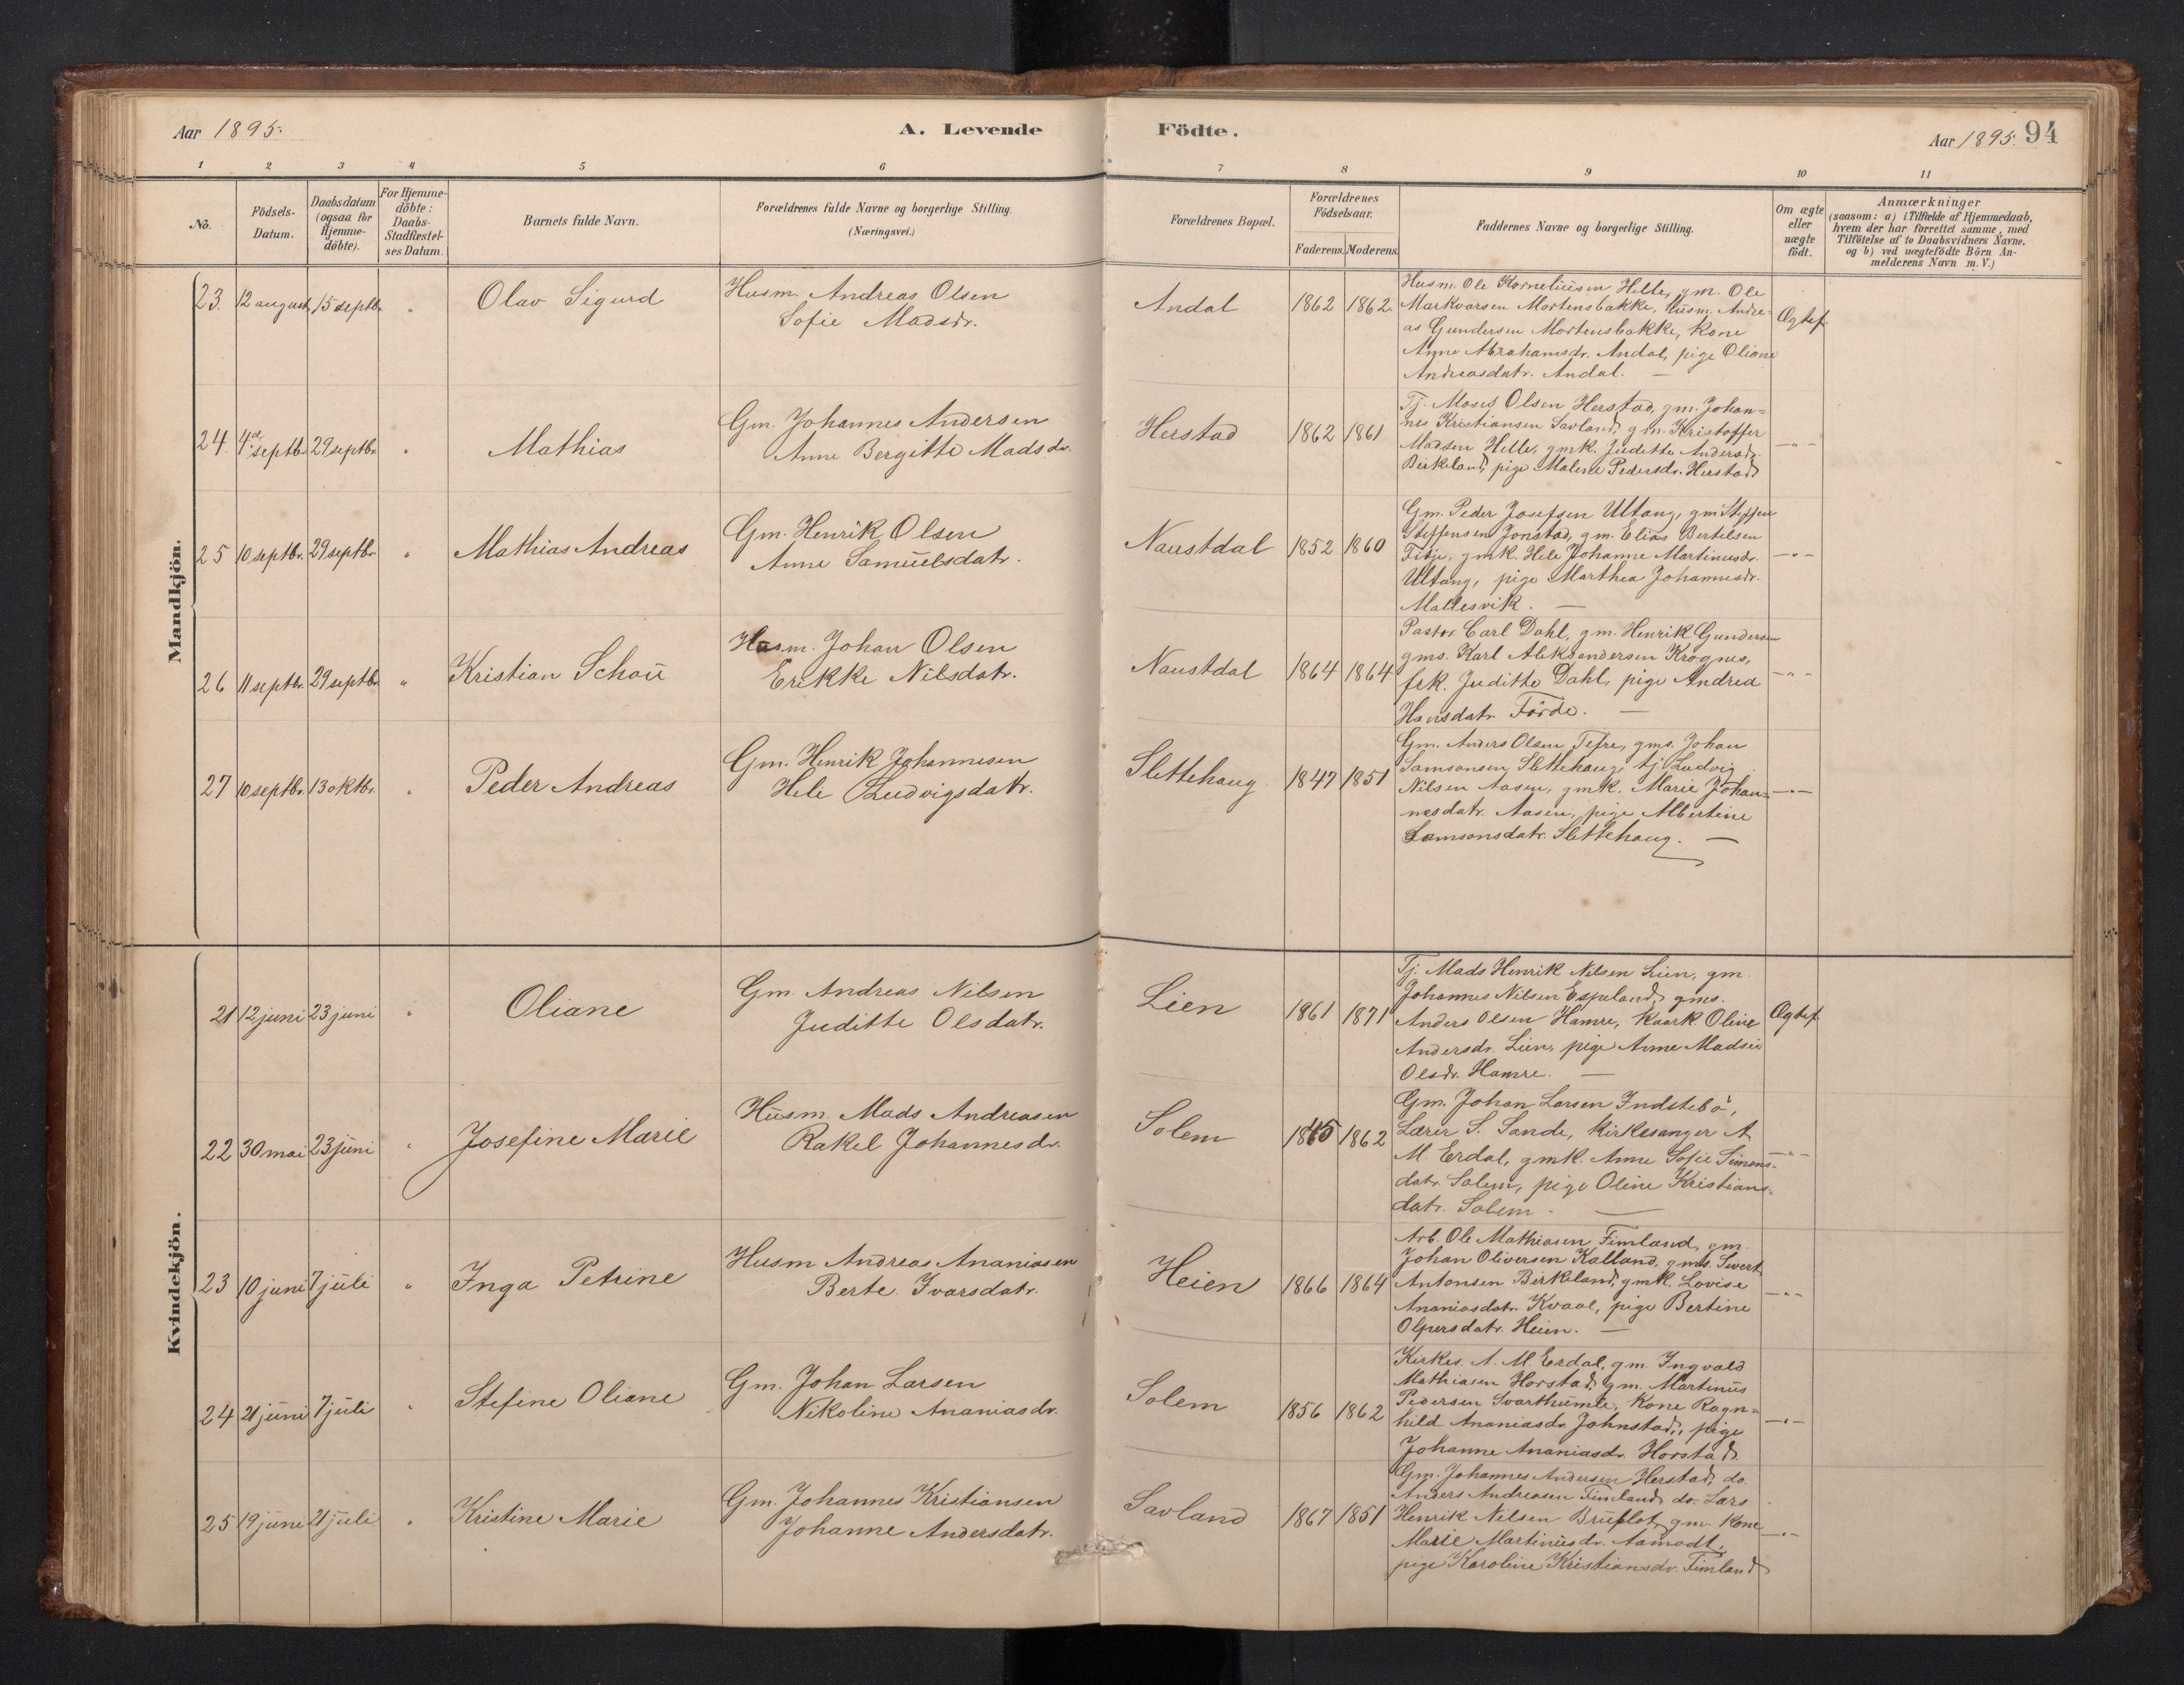 Aar 1895.
A. Levende Födte.
Aar 1895. 94
1 2 3 4 5 6 7 8 9 10 11
No.
Födsels-Datum.
Daabsdatum (ogsaa for Hjemme-döbte).
For Hjemme-döbte: Daabs-Stadfæstel-ses Datum.
Barnets fulde Navn.
Forældrenes fulde Navne og borgerlige Stilling. (Næringsvei.)
Forældrenes Bopæl.
Forældrenes Födselsaar.
Faderens. Moderens.
Faddernes Navne og borgerlige Stilling.
Om ægte eller uægte födt.
Anmærkninger
(saasom: a) i Tilfælde af Hjemmedaab,
hvem der har forrettet samme, med
Tilföielse af to Daabsvidners Navne.
og b) ved uægtefödte Börn An-
melderens Navn m. V.)
Mandkjön.
23. 12 august 15 septbr. " Olav Sigurd
Husm. Andreas Olsen
Sofie Madsdr.
Andal 1862 1862.
Husm. Ole Korneliusen Helle, gm. Ole
Markvorsen Mortensbakke, Husm. Andre-
as Gundersen Mortensbakke, kone
Anne Abrahamsdr. Andal, pige Oliane
Andreasdatr. Andal. —
Ægtef.
24. 4de septbr. 29 septbr. " Mathias
Gm. Johannes Andersen
Anne Bergitte Madsdr.
Herstad 1862 1861
Tj. Moses Olsen Herstad, gm. Johan=
nes Kristiansen Savland, gm. Kristoffer
Madsen Helle, gmk. Juditte Andersdr.
Birkeland, pige Malene Pedersdr. Herstad
—"—
25 10 septbr. 29 septbr. " Mathias Andreas
Gm. Henrik Olsen
Anne Samuelsdatr.
Naustdal 1852 1860
Gm. Peder Josefsen Ultang, gm Steffen
Steffensen Jonstad, gm. Elias Bertelsen
Fitje, gmk. Hele Johanne Martinusdr.
Ultang, pige Marthea Johannesdr.
Mallesvik. —
—"—
26 11 septbr. 29 septbr. " Kristian Schou
Husm. Johan Olsen
Erikke Nilsdatr.
Naustdal 1864 1864
Pastor Carl Dahl, gm. Henrik Gundersen
gms. Karl Aleksandersen Krognes,
frk. Juditte Dahl, pige Andrea
Hansdatr. Förde. —
—"—
27 10 septbr. 13 oktbr. " Peder Andreas
Gm. Henrik Johannesen
Hele Ludvigsdatr.
Slettehaug 1847 1851
Gm. Anders Olsen Tefre, gms. Johan
Samsonsen Slettehaug, tj. Ludvig
Nilsen Aasen, gmk. Marie Johan=
nesdatr. Aasen, pige Albertine
Samsonsdatr. Slettehaug. —
—"—
Kvindekjön.
21 12 juni 23 juni " Oliane
Gm. Andreas Nilsen
Juditte Olsdatr.
Lien 1861 1871
Tj. Mads Henrik Nilsen Lien, gm.
Johannes Nilsen Espeland, gms.
Anders Olsen Hamre, kaark. Oline
Andersdr. Lien, pige Anne Madsei
Olsdr. Hamre. —
Ægtef.
22 30 mai 23 juni " Josefine Marie
Husm. Mads Andreasen
Rakel Johannesdr.
Solem 1865 1862
Gm. Johan Larsen Indstebö,
Lærer S. Sande, kirkesanger A.
M. Erdal, gmk. Anne Sofie Simens-
datr. Solem, pige Oline Kristians-
datr. Solem. —
—"—
23 10 juni 7 juli " Inga Petrine
Husm Andreas Ananiasen
Berte Ivarsdatr.
Heien 1866 1864
Arb. Ole Mathiasen Fimland, gm.
Johan Oliversen Kalland, gms. Sivert
Antonsen Birkeland, gmk. Lovise
Ananiasdatr. Kvaal, pige Bertine
Olpersdatr. Heien. —
—"—
24 21 juni 7 juli " Stefine Oliane
Gm. Johan Larsen
Nikoline Ananiasdr.
Solem 1856 1862
Kirkes. A. M. Erdal, gm. Ingvald
Mathiasen Horstad, gm. Martinus
Pedersen Svarthumle, Kone Ragn=
hild Ananiasdr. Johnstad, pige
Johanne Ananiasdr. Horstad.
—"—
25 19 juni 21 juli " Kristine Marie
Gm. Johannes Kristiansen
Johanne Andersdatr.
Savland 1867 1851
Gm. Johannes Andersen Herstad, do.
Anders Andreasen Fimland, do. Lars
Henrik Nilsen Bruflot, gm. Kone
Marie Martinusdr. Aamodt,
pige Karoline Kristiansdr. Fimland
—"—